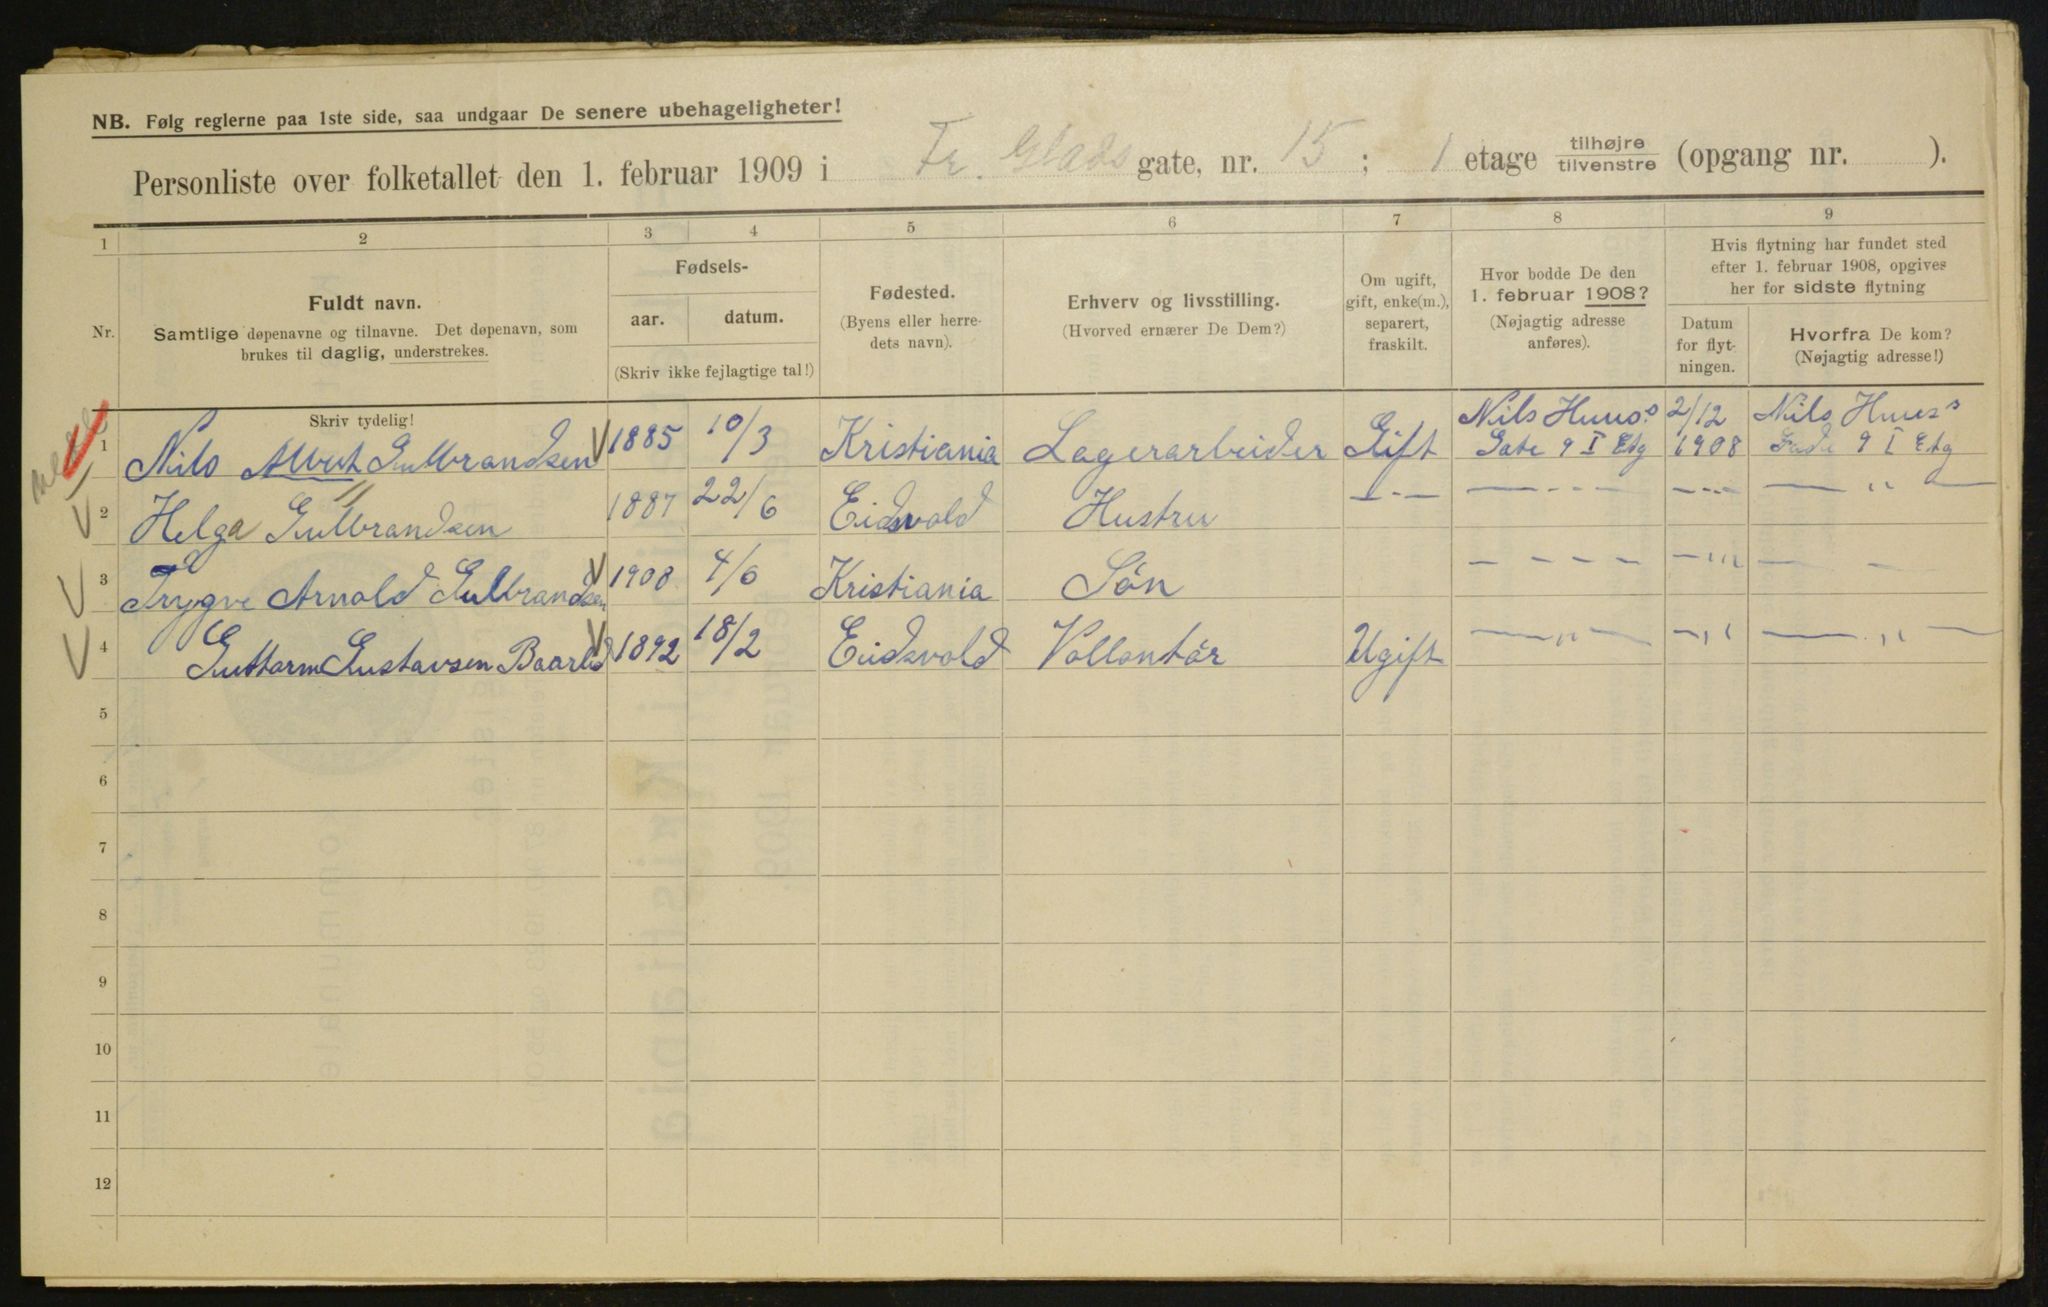 NB. Følg reglerne paa 1ste side, saa undgaar De senere ubehageligheter!
Personliste over folketallet den 1. februar 1909 i Fr. Glads gate, nr. 15 ; 1 etage tilhøjre tilvenstre (opgang nr. ).
1 2 3 4 5 6 7 8 9
Nr.
Fuldt navn.
Samtlige døpenavne og tilnavne. Det døpenavn, som
brukes til daglig, understrekes.
Fødsels-
aar. datum.
(Skriv ikke fejlagtige tal!)
Fødested.
(Byens eller herre-
dets navn).
Erhverv og livsstilling.
(Hvorved ernærer De Dem?)
Om ugift,
gift, enke(m.),
separert,
fraskilt.
Hvor bodde De den
1. februar 1908?
(Nøjagtig adresse
anføres).
Hvis flytning har fundet sted
efter 1. februar 1908, opgives
her for sidste flytning
Datum
for flyt-
ningen.
Hvorfra De kom?
(Nøjagtig adresse!)
Skriv tydelig!
1 Nils Albert Gulbrandsen 1885 10/3 Kristiania Lagerarbeider Gift Nils Huus's Gate 9 I Etg 2/12 1908 Nils Huus's 9 I Etg
2 Helga Gulbrandsen 1887 22/6 Eidsvold Hustru — - - — — - - - — — - - — — ,, —
3 Trygve Arnold Gulbrandsen 1908 4/6 Kristiania Søn — — — — — ,,, — —
4 Guttorm Gustavsen 1892 18/2 Eidsvold Vollontør Ugift — ,, — — ,, — ,, —
5
6
7
8
9
10
11
12